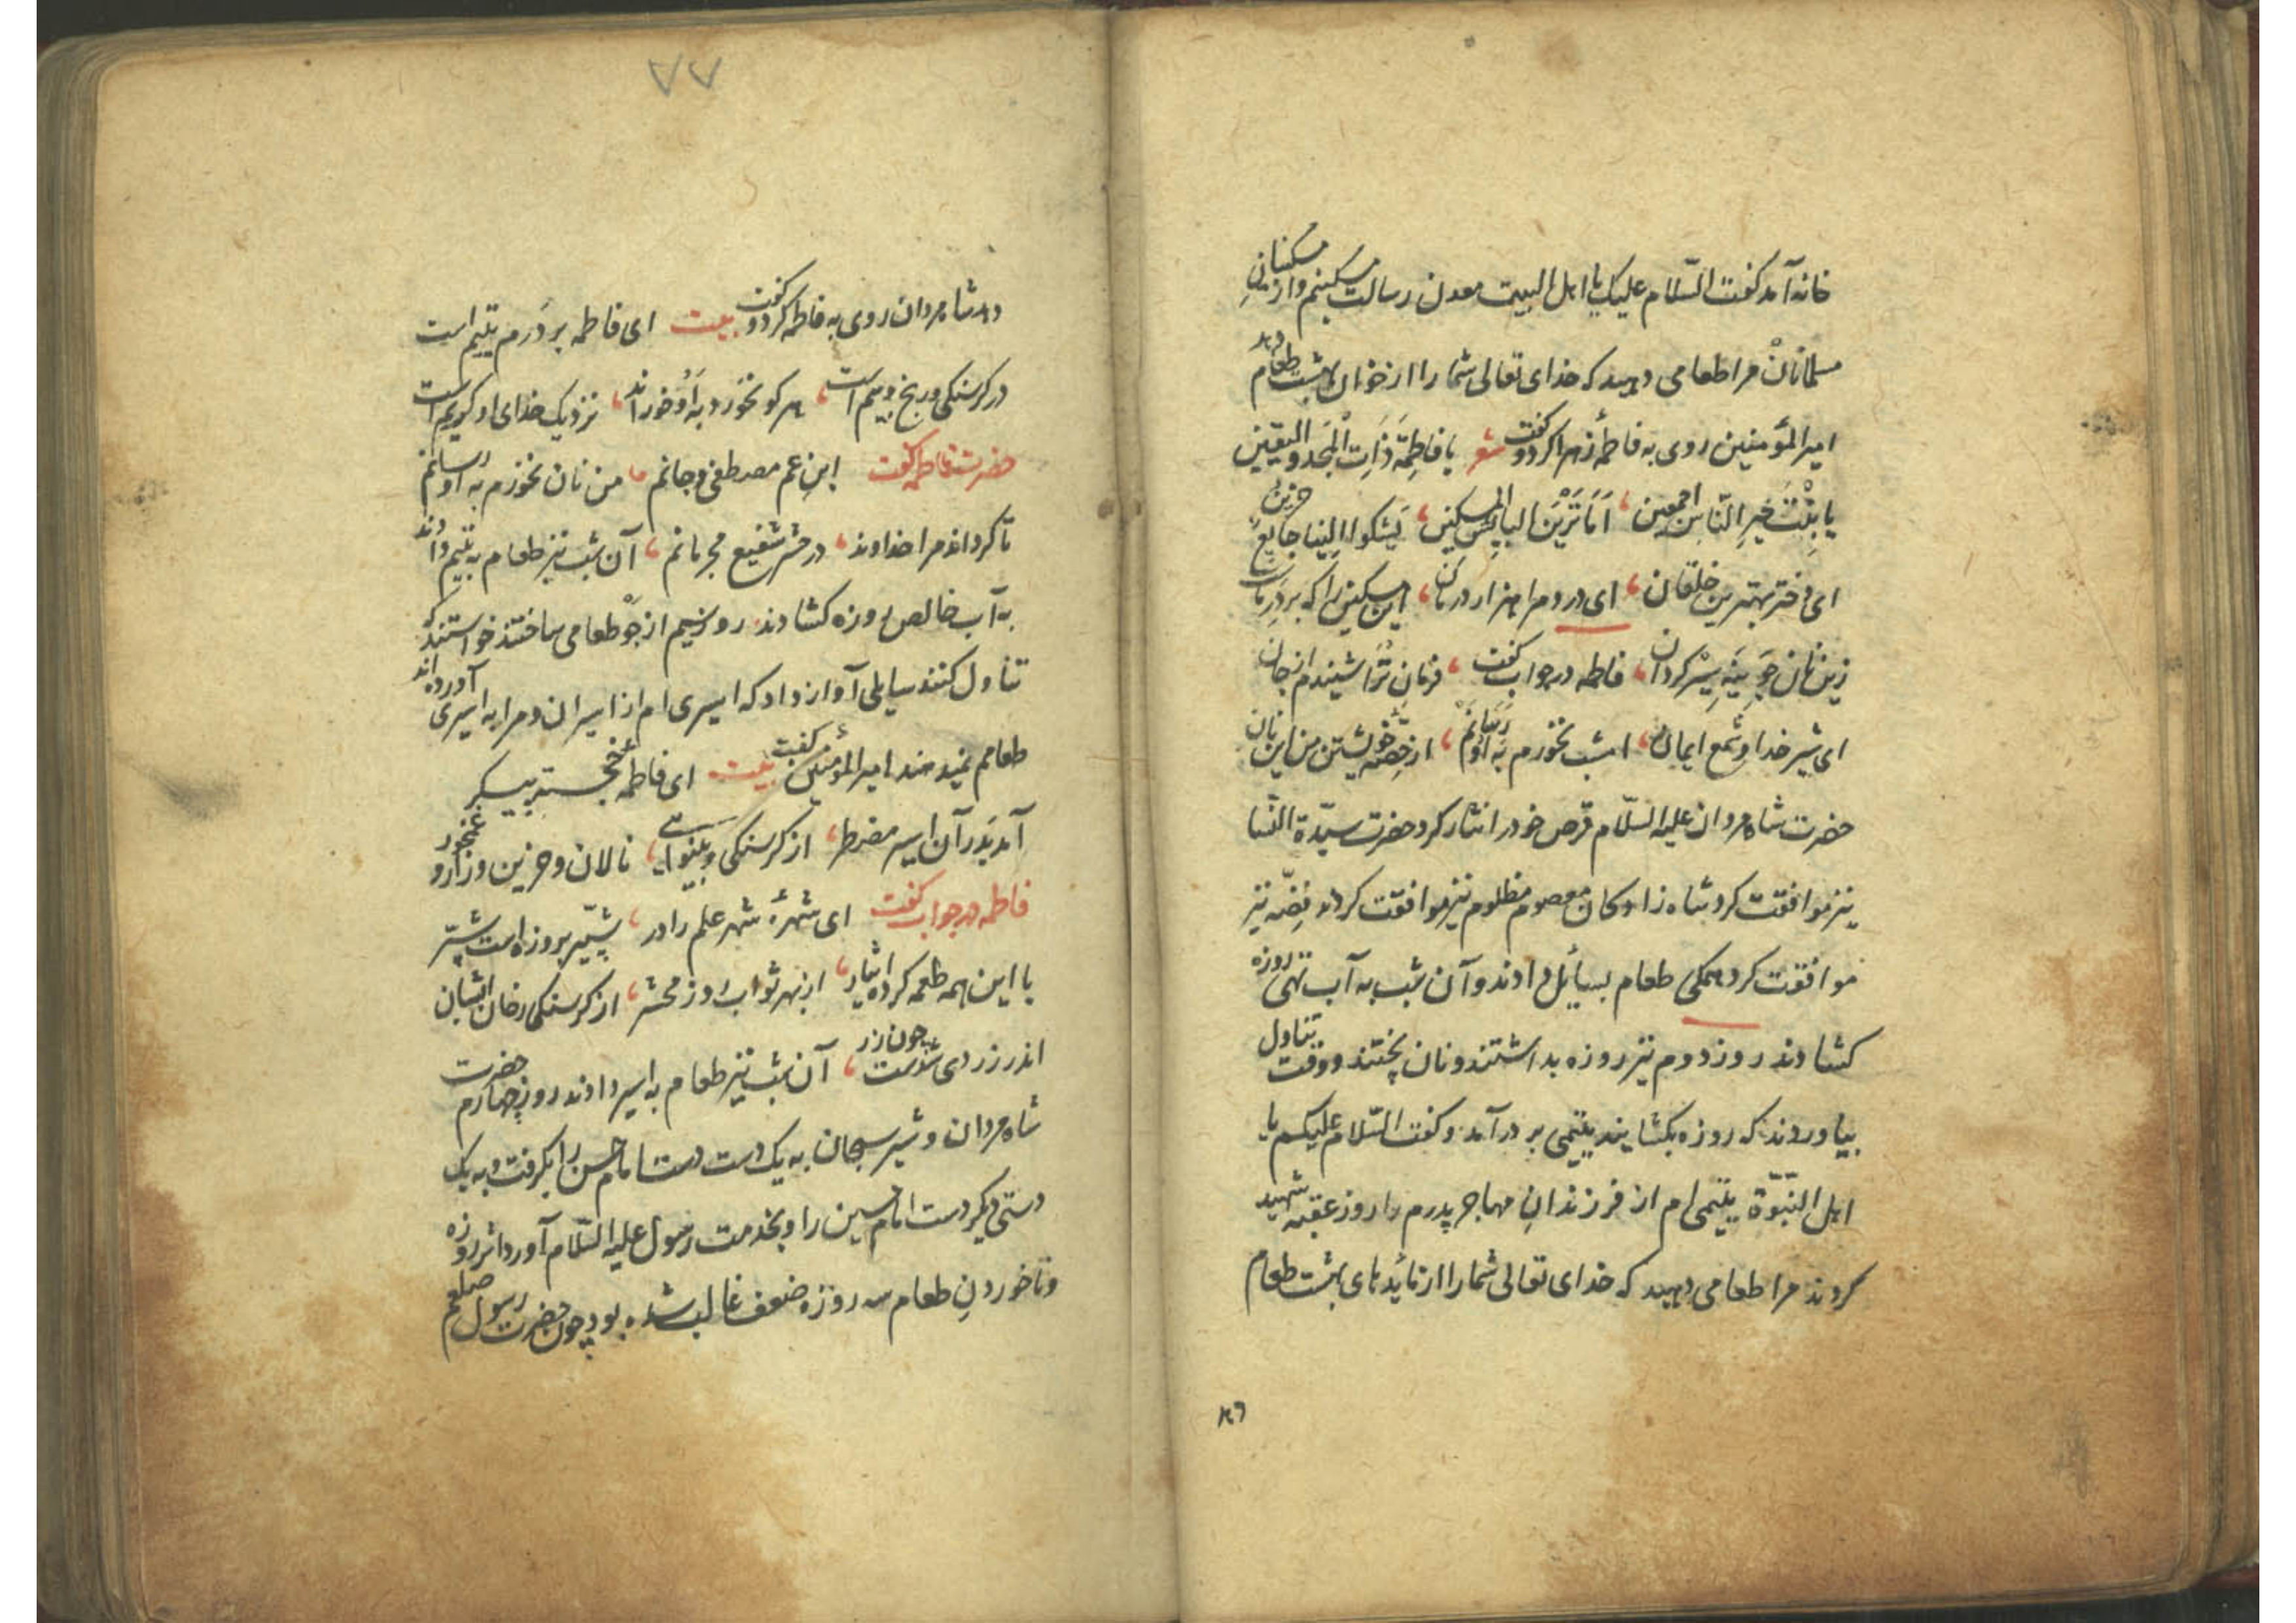 خانه آمد کفت السّلام علیک یا اهل البیت معدن رسالت مسکینم واز مسکینانِ
مسلمانانْ مرا طعامی دهید که خدای تعالی شما را از خوان بهشت طعام دهد
امیر المؤمنین روی به فاطمهٔ زهرا کرد و کفت شعر یا فاطِمَة ذَاتِ الْمَجد والیقین
یا بِنْتَ خیرِ النّاسِ اجمعین، اَمَا تَرَیْنَ البایِسَ المسکین، یَشکوا اِلینا جایِعٌ حزین
ای دختر بهترین خلقان، ای درد مرا هزار درمان، این مسکین را که بر درِ ماست
زین نان جوینه سیر کردان، فاطمه در جواب کفت، فرمانِ تُرا شنیدم از جان
ای شیر خدا و شمع ایمان، امشب نخورم به او رسانم، از حصّهٔ خویشتن من این نان
حضرت شاه مردان علیه السّلام قرص خود را نثار کرد حضرت سیّدة النّسا
نیز موافقت کرد شاه زادکان معصوم مظلوم نیز موافقت کردند فضّه نیز
موافقت کرد همکی طعام بسائل دادند وآن شب به آب تهی روزه
کشادند روز دوم نیز روزه بداشتند ونان پختند ووقت تناول
بیاوردند که روزه بکشایند یتیمی بر در آمد وکفت السّلام علیکم یا
اهل النّبوّة یتیمی ام از فرزندانِ مهاجر پدرم را روز عقبه شهید
کردند مرا طعامی دهید که خدای تعالی شما را از مائدهای بهشت طعام
٧٧
دهد شاه مردان روی به فاطمه کرد و کفت بیت ای فاطمه بر دَرم یتیم است
در کرسنکی ورنج وبیم است، هر کو نخورد به او خوراند، نزدیک خدای او کریم است
حضرت فاطمه کفت ابنِ عم مصطفی وجانم، من نان نخورم به او رسانم
تا کرداند مرا خداوند، در حشر شفیع مجرمانم، آن شب نیز طعام به یتیم دادند
به آب خالص روزه کشادند روز سیم از جَو طعامی ساختند خواستند که
تناول کنند سایلی آواز داد که اسیری ام از اسیران ومرا به اسیری آورده اند
طعامم نمیدهند امیر المؤمنین کفت بیت ای فاطمهٔ خجسته پیکر
آمد بَدَر آن اسیر مضطر، از کرسنکی وبینوایی، نالان وحزین وزار و غمخور
فاطمه در جواب کفت ای شهرهٔ شهر علم را در، شبّیر بروزه است شبّر
با این همه طعمه کرده ایثار، از بهر ثواب روز محشر، از کرسنکی رخان ایشان
اندر زردی شدست چون زر، آن شب نیز طعام به اسیر دادند روز چهارم حضرت
شاه مردان وشیر سبحان به یک دست دست امام حسن را بکرفت وبه یک
دستی دیکر دست امام حسین را وبخدمت رسول علیه السّلام آورد اثر روزه
وناخوردنِ طعام سه روزه ضعف غالب شده بود چون حضرت رسول صلعم